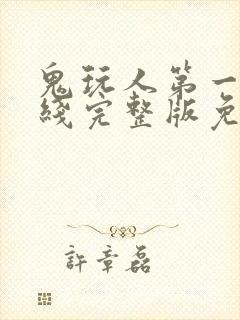 鬼玩人第一
綫完整版免
許章磊